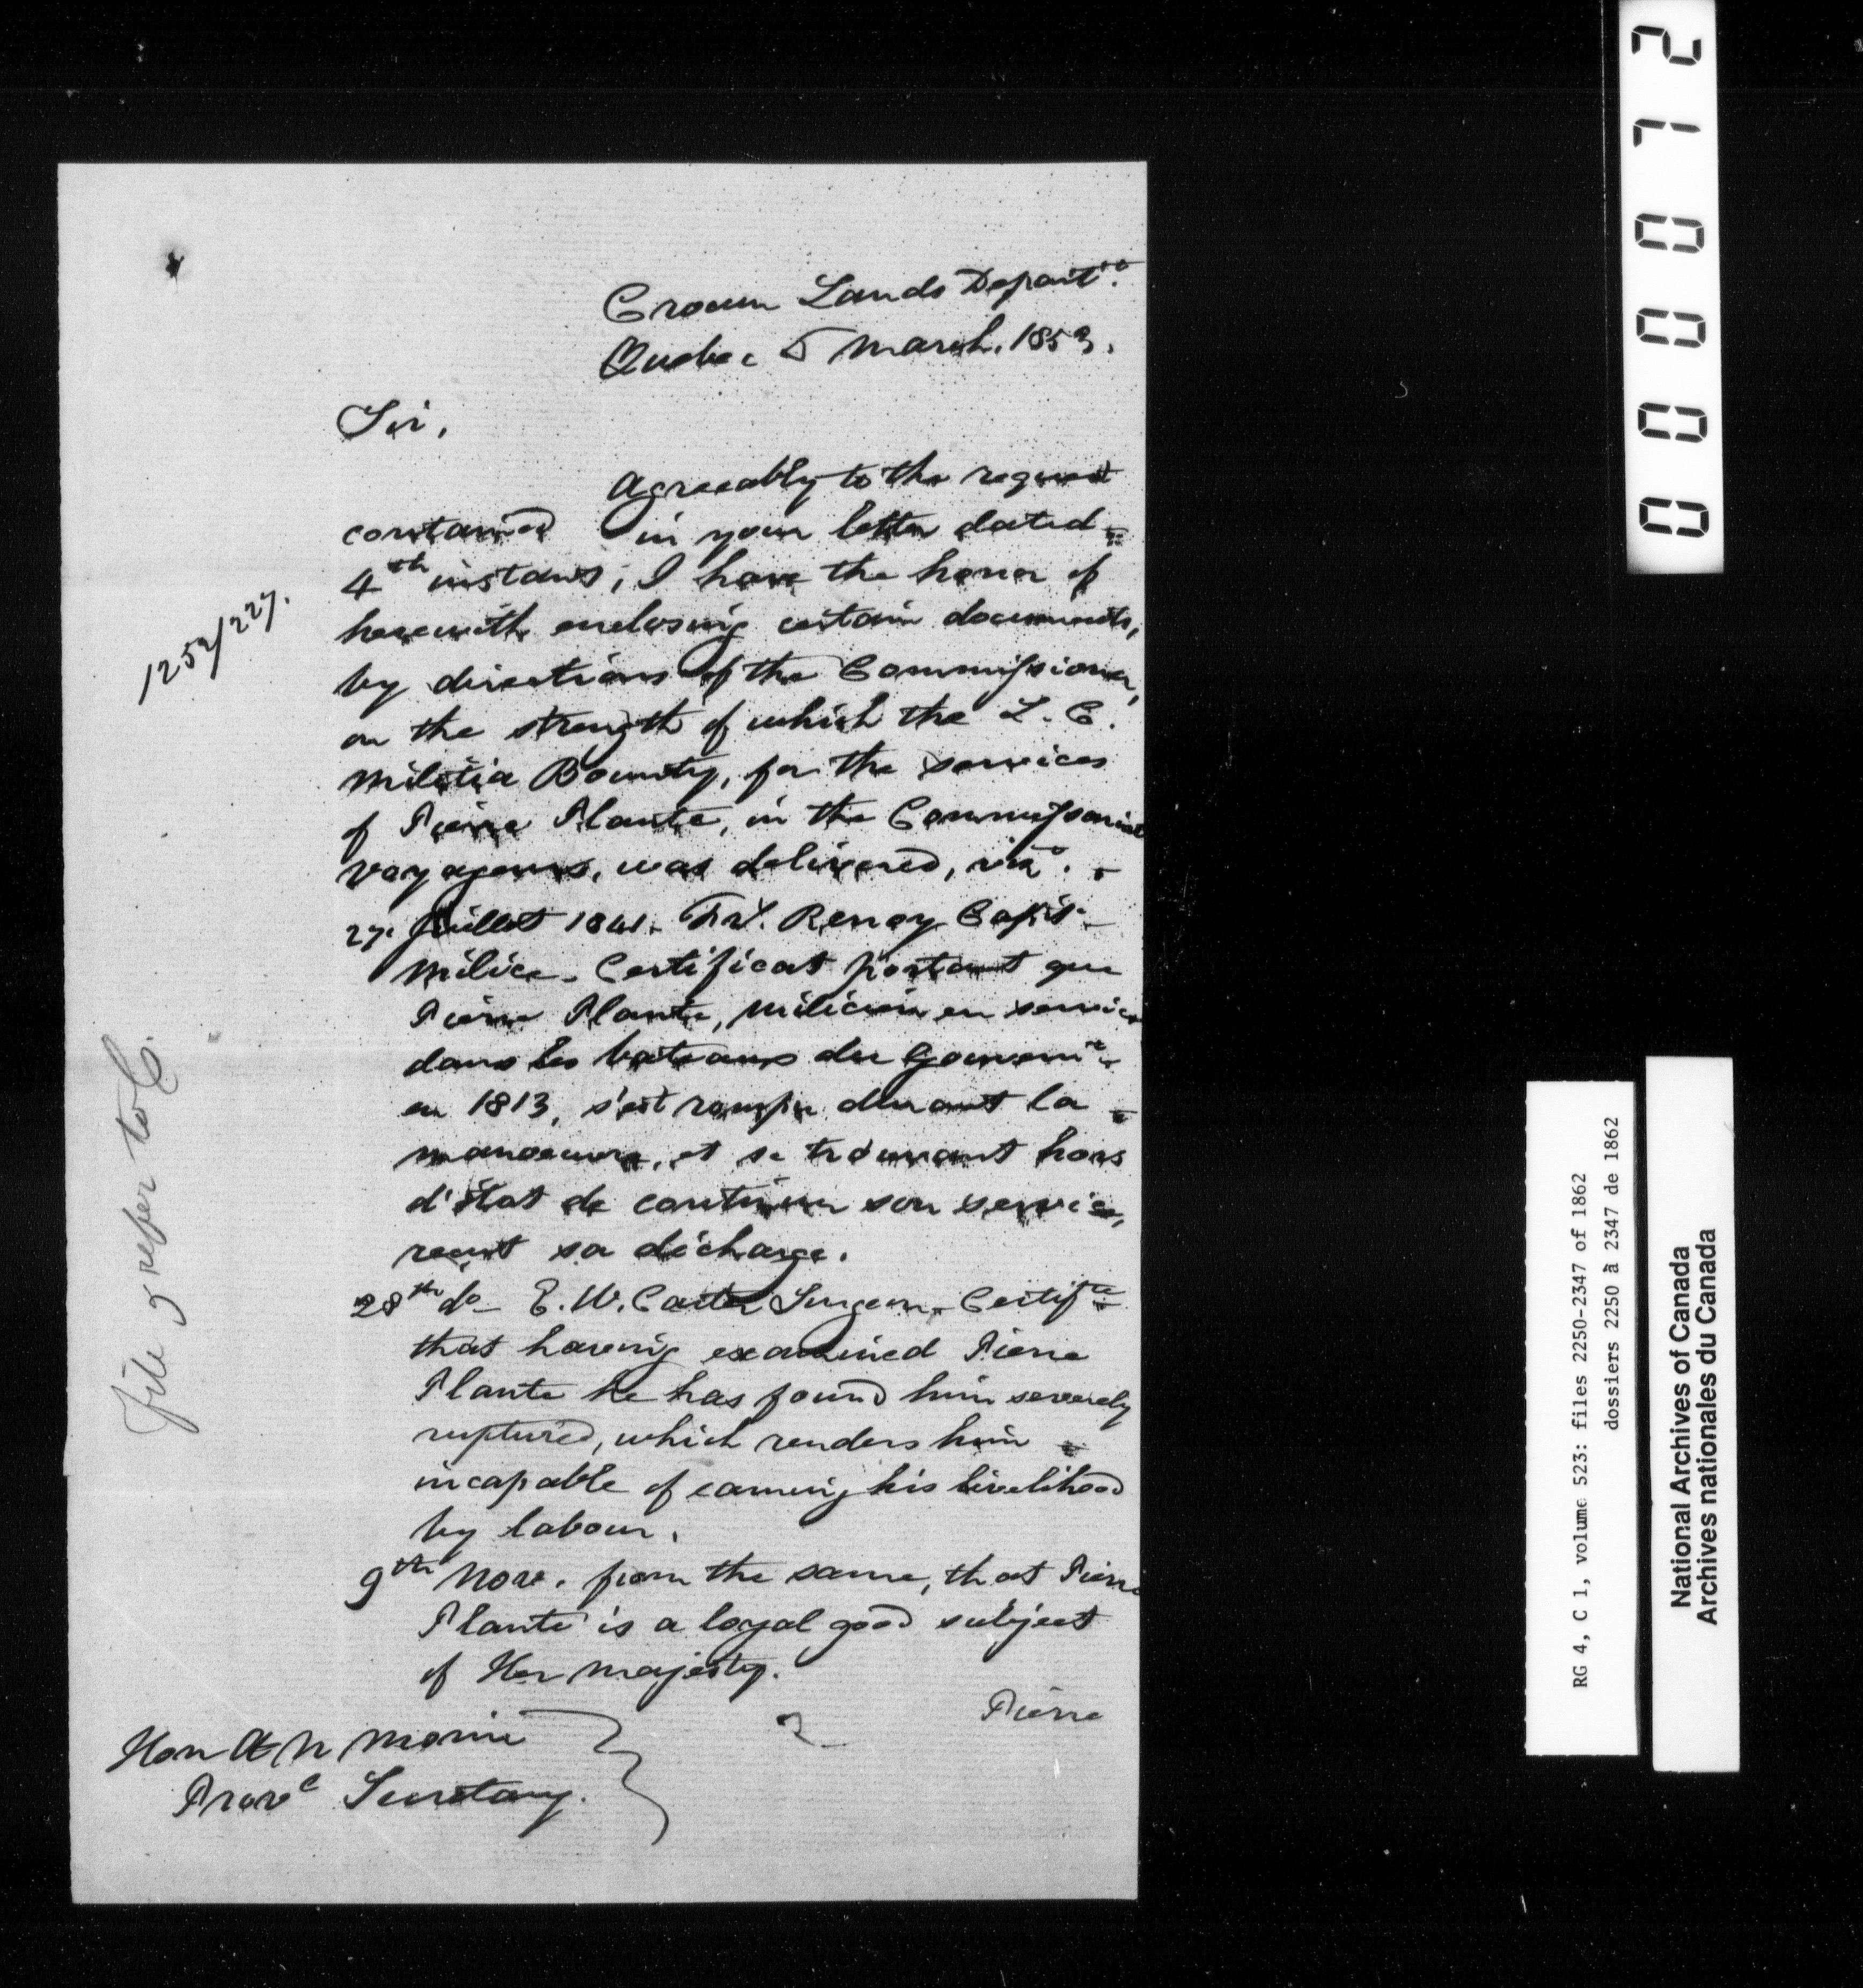 Crown Lands Departt.
Quebec 5 March. 1853.
Sir,
Agreeably to the request
contained in your letter dated
4th instant, I have the honor of
herewith enclosing certain documents,
by directions of the Commissioner,
on the strength of which the L. C.
Militia Bounty, for the services
of Pierre Plante, in the Commissariat
voyageurs, was delivered, viz.
27. Juillet 1841. Frs. Remy Capt.
Milice. Certificat portant que
Pierre Plante, milicien en service
dans les bateaux du Gouvernt.
en 1813, s'est rompu durant la
manoeuvre, et se trouvant hors
d'état de continuer son service,
reçut sa décharge.
28th do E. W. Carter Surgeon. Certifte
that having examined Pierre
Plante he has found him severely
ruptured, which renders him
incapable of earning his livelihood
by labour.
9th Nove. from the same, that Pierre
Plante is a loyal good subject
of Her Majesty.
Pierre
Hon A N Morin
Provc Secretary.
1252/227.
File & refer to C.
00072
RG 4, C 1, volume 523: files 2250-2347 of 1862
dossiers 2250 à 2347 de 1862
National Archives of Canada
Archives nationales du Canada